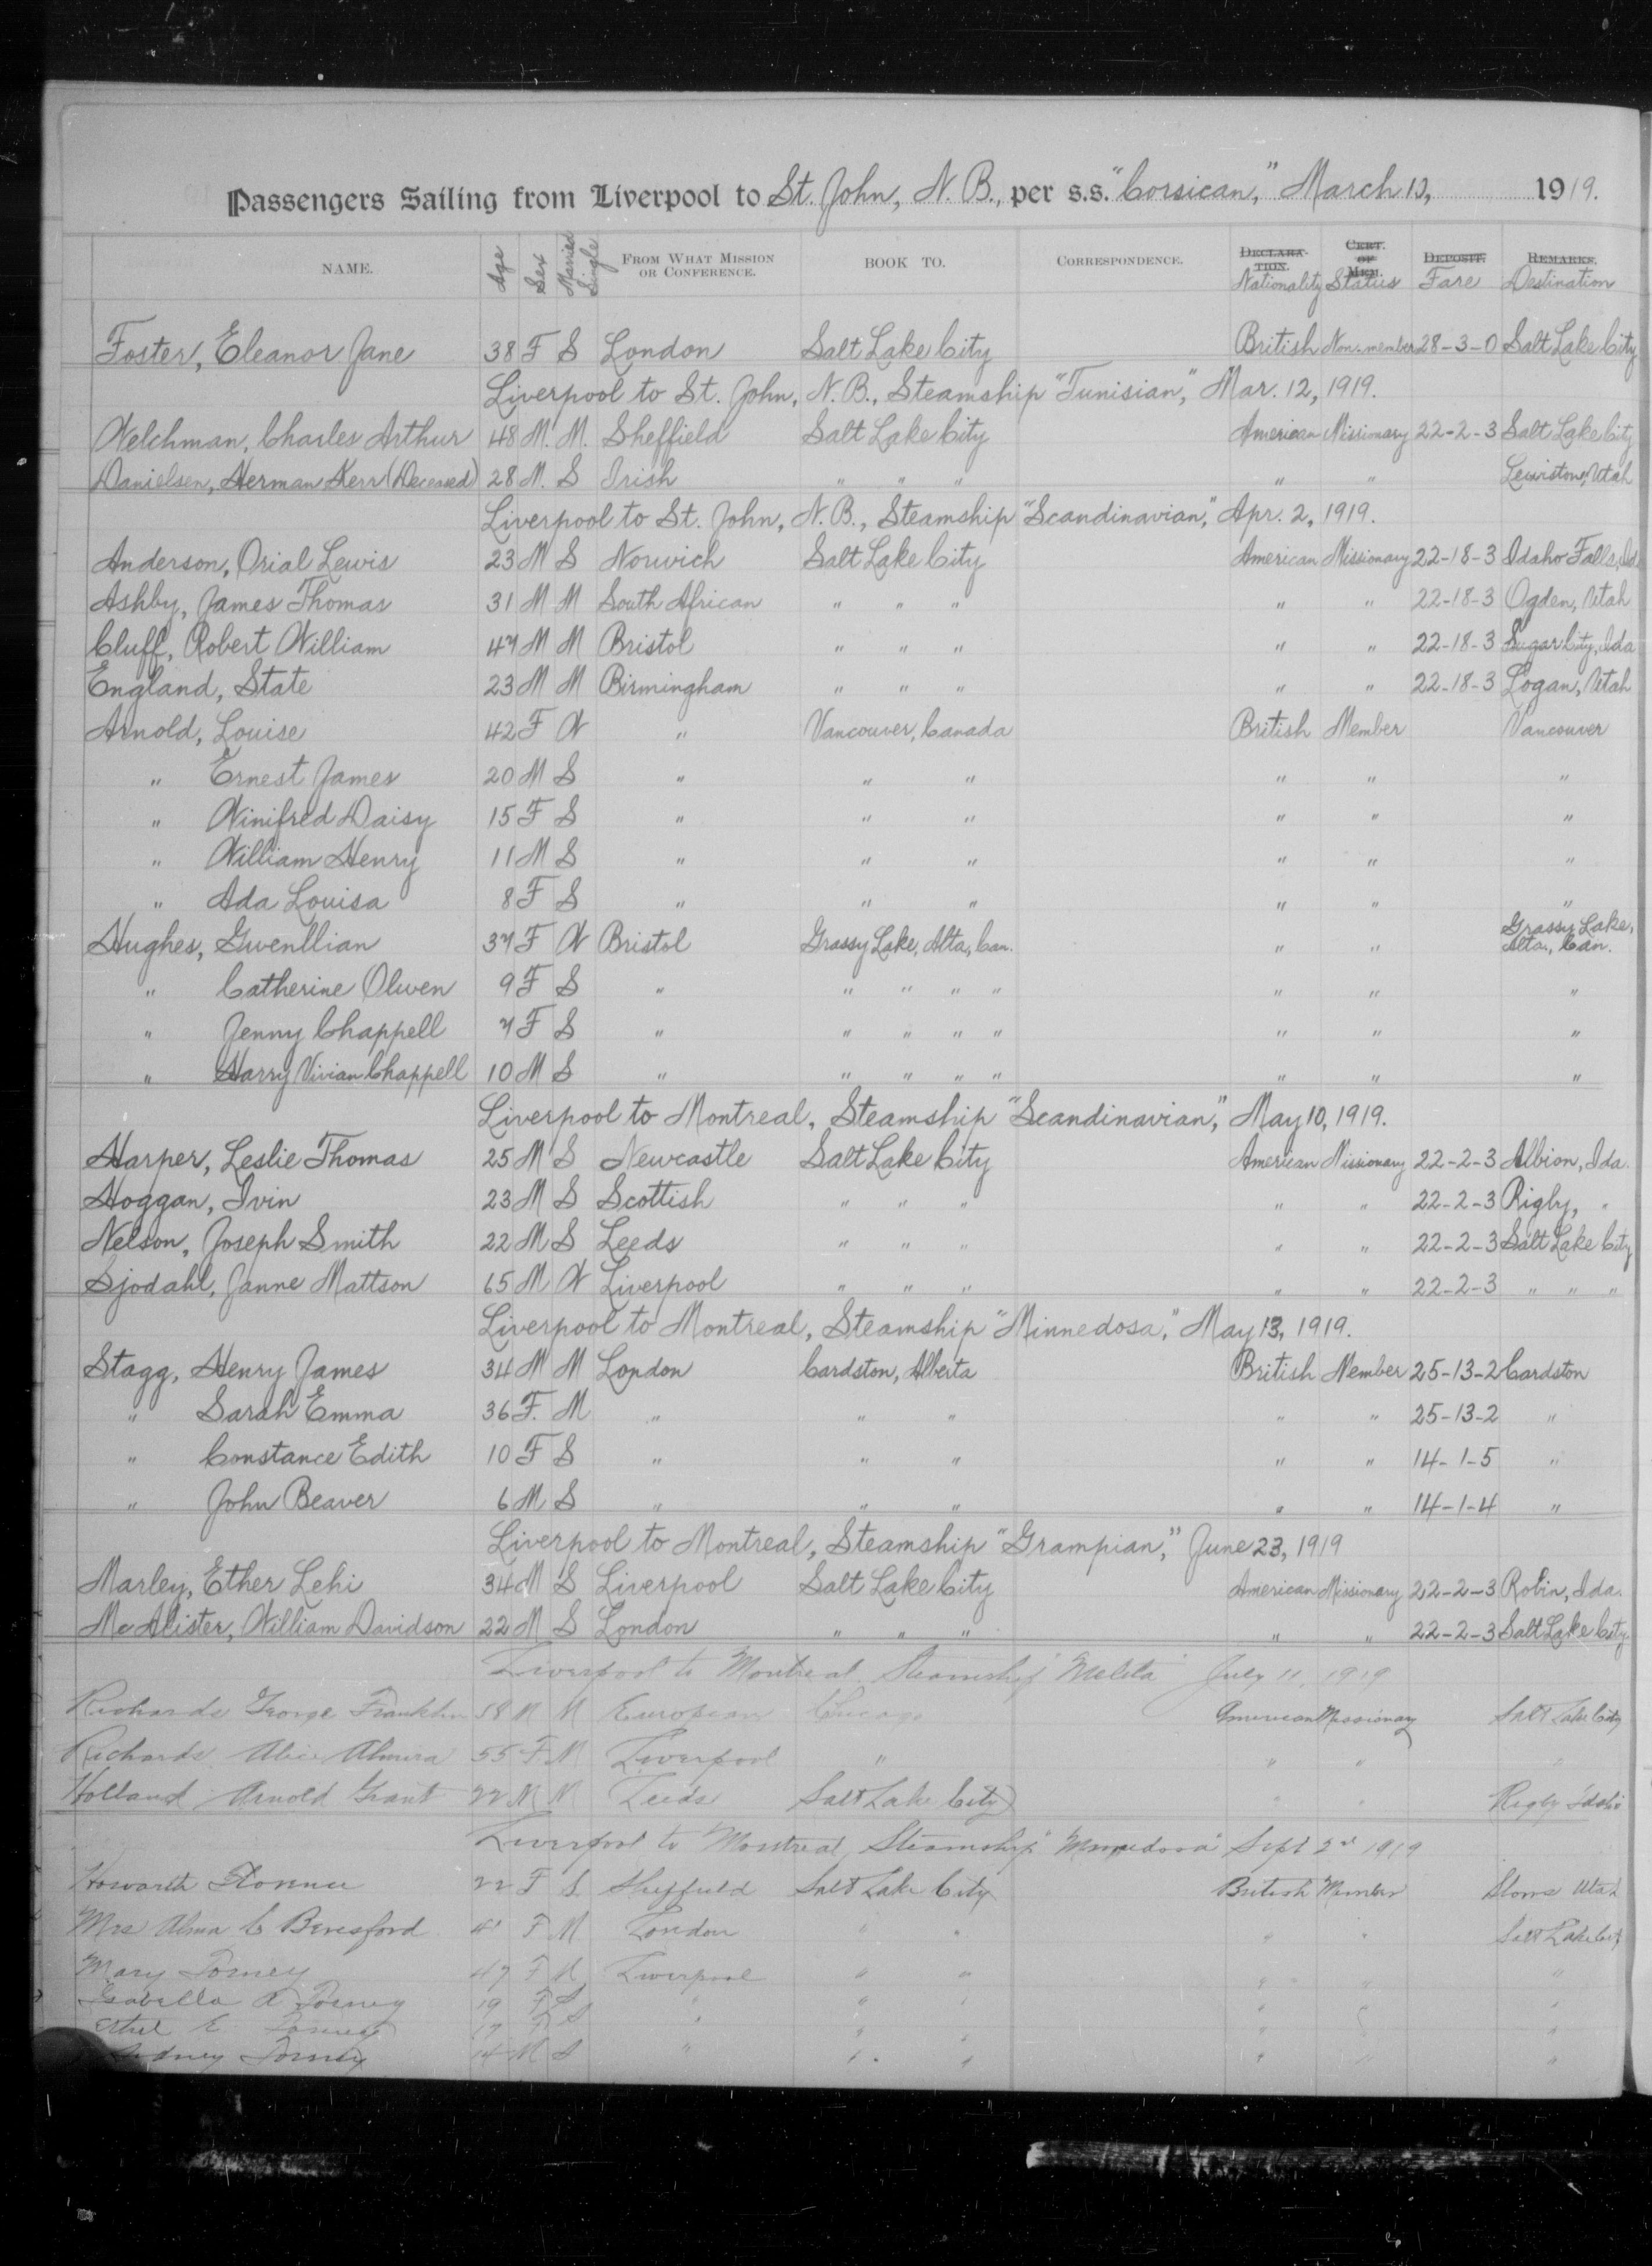 Passengers Sailing from Liverpool to St. John, N. B., per s.s. "Corsican," March 12, 1919.
NAME. Age Sex Married Single FROM WHAT MISSION OR CONFERENCE. BOOK TO. CORRESPONDENCE. DECLARATION. Nationality CERT. OF MEM. Status DEPOSIT. Fare REMARKS. Destination
Foster, Eleanor Jane 38 F S London Salt Lake City British Non-member 28-3-0 Salt Lake City
Liverpool to St. John, N. B., Steamship "Tunisian," Mar. 12, 1919.
Welchman, Charles Arthur 48 M. M. Sheffield Salt Lake City American Missionary 22-2-3 Salt Lake City
Danielsen, Herman Kerr (Deceased) 28 M. S Irish " " " " " Lewiston, Utah
Liverpool to St. John, N. B., Steamship "Scandinavian," Apr. 2, 1919.
Anderson, Orial Lewis 23 M S Norwich Salt Lake City American Missionary 22-18-3 Idaho Falls, Ida
Ashby, James Thomas 31 M M South African " " " " " 22-18-3 Ogden, Utah
Cluff, Robert William 47 M M Bristol " " " " " 22-18-3 Sugar City, Ida
England, State 23 M M Birmingham " " " " " 22-18-3 Logan, Utah
Arnold, Louise 42 F W " Vancouver, Canada British Member Vancouver
" Ernest James 20 M S " " " " " "
" Winifred Daisy 15 F S " " " " " "
" William Henry 11 M S " " " " " "
" Ada Louisa 8 F S " " " " " "
Hughes, Gwenllian 37 F W Bristol Grassy Lake, Alta., Can. " " Grassy Lake, Alta., Can.
" Catherine Olwen 9 F S " " " " " " " "
" Jenny Chappell 7 F S " " " " " " " "
" Harry Vivian Chappell 10 M S " " " " " " " "
Liverpool to Montreal, Steamship "Scandinavian," May 10, 1919.
Harper, Leslie Thomas 25 M S Newcastle Salt Lake City American Missionary 22-2-3 Albion, Ida.
Hoggan, Ivin 23 M S Scottish " " " " " 22-2-3 Rigby, "
Nelson, Joseph Smith 22 M S Leeds " " " " " 22-2-3 Salt Lake City
Sjodahl, Janne Mattson 65 M W Liverpool " " " " " 22-2-3 " " "
Liverpool to Montreal, Steamship "Minnedosa," May 13, 1919.
Stagg, Henry James 34 M M London Cardston, Alberta British Member 25-13-2 Cardston
" Sarah Emma 36 F. M " " " " " 25-13-2 "
" Constance Edith 10 F S " " " " " 14-1-5 "
" John Beaver 6 M S " " " " " 14-1-4 "
Liverpool to Montreal, Steamship "Grampian," June 23, 1919
Marley, Ether Lehi 34 M S Liverpool Salt Lake City American Missionary 22-2-3 Robin, Ida.
McAlister, William Davidson 22 M S London " " " " " 22-2-3 Salt Lake City.
Liverpool to Montreal Steamship "Melita" July 11, 1919
Richards George Franklin 58 M M European Chicago American Missionary Salt Lake City
Richards Alice Almira 55 F M Liverpool " " " "
Holland Arnold Grant 22 M M Leeds Salt Lake City " " Rigby Idaho
Liverpool to Montreal, Steamship "Minnedosa" Sept 2nd 1919
Howarth Florence 22 F S Sheffield Salt Lake City British Member Utah
Mrs Alma C Beresford 41 F M London " " " " Salt Lake City
Mary Torney 47 F M Liverpool " " " " "
Isabella R Torney 19 F S " " " " " "
Ethel E. Torney 17 F S " " " " "
Sidney Torney 14 M S " " " " " "